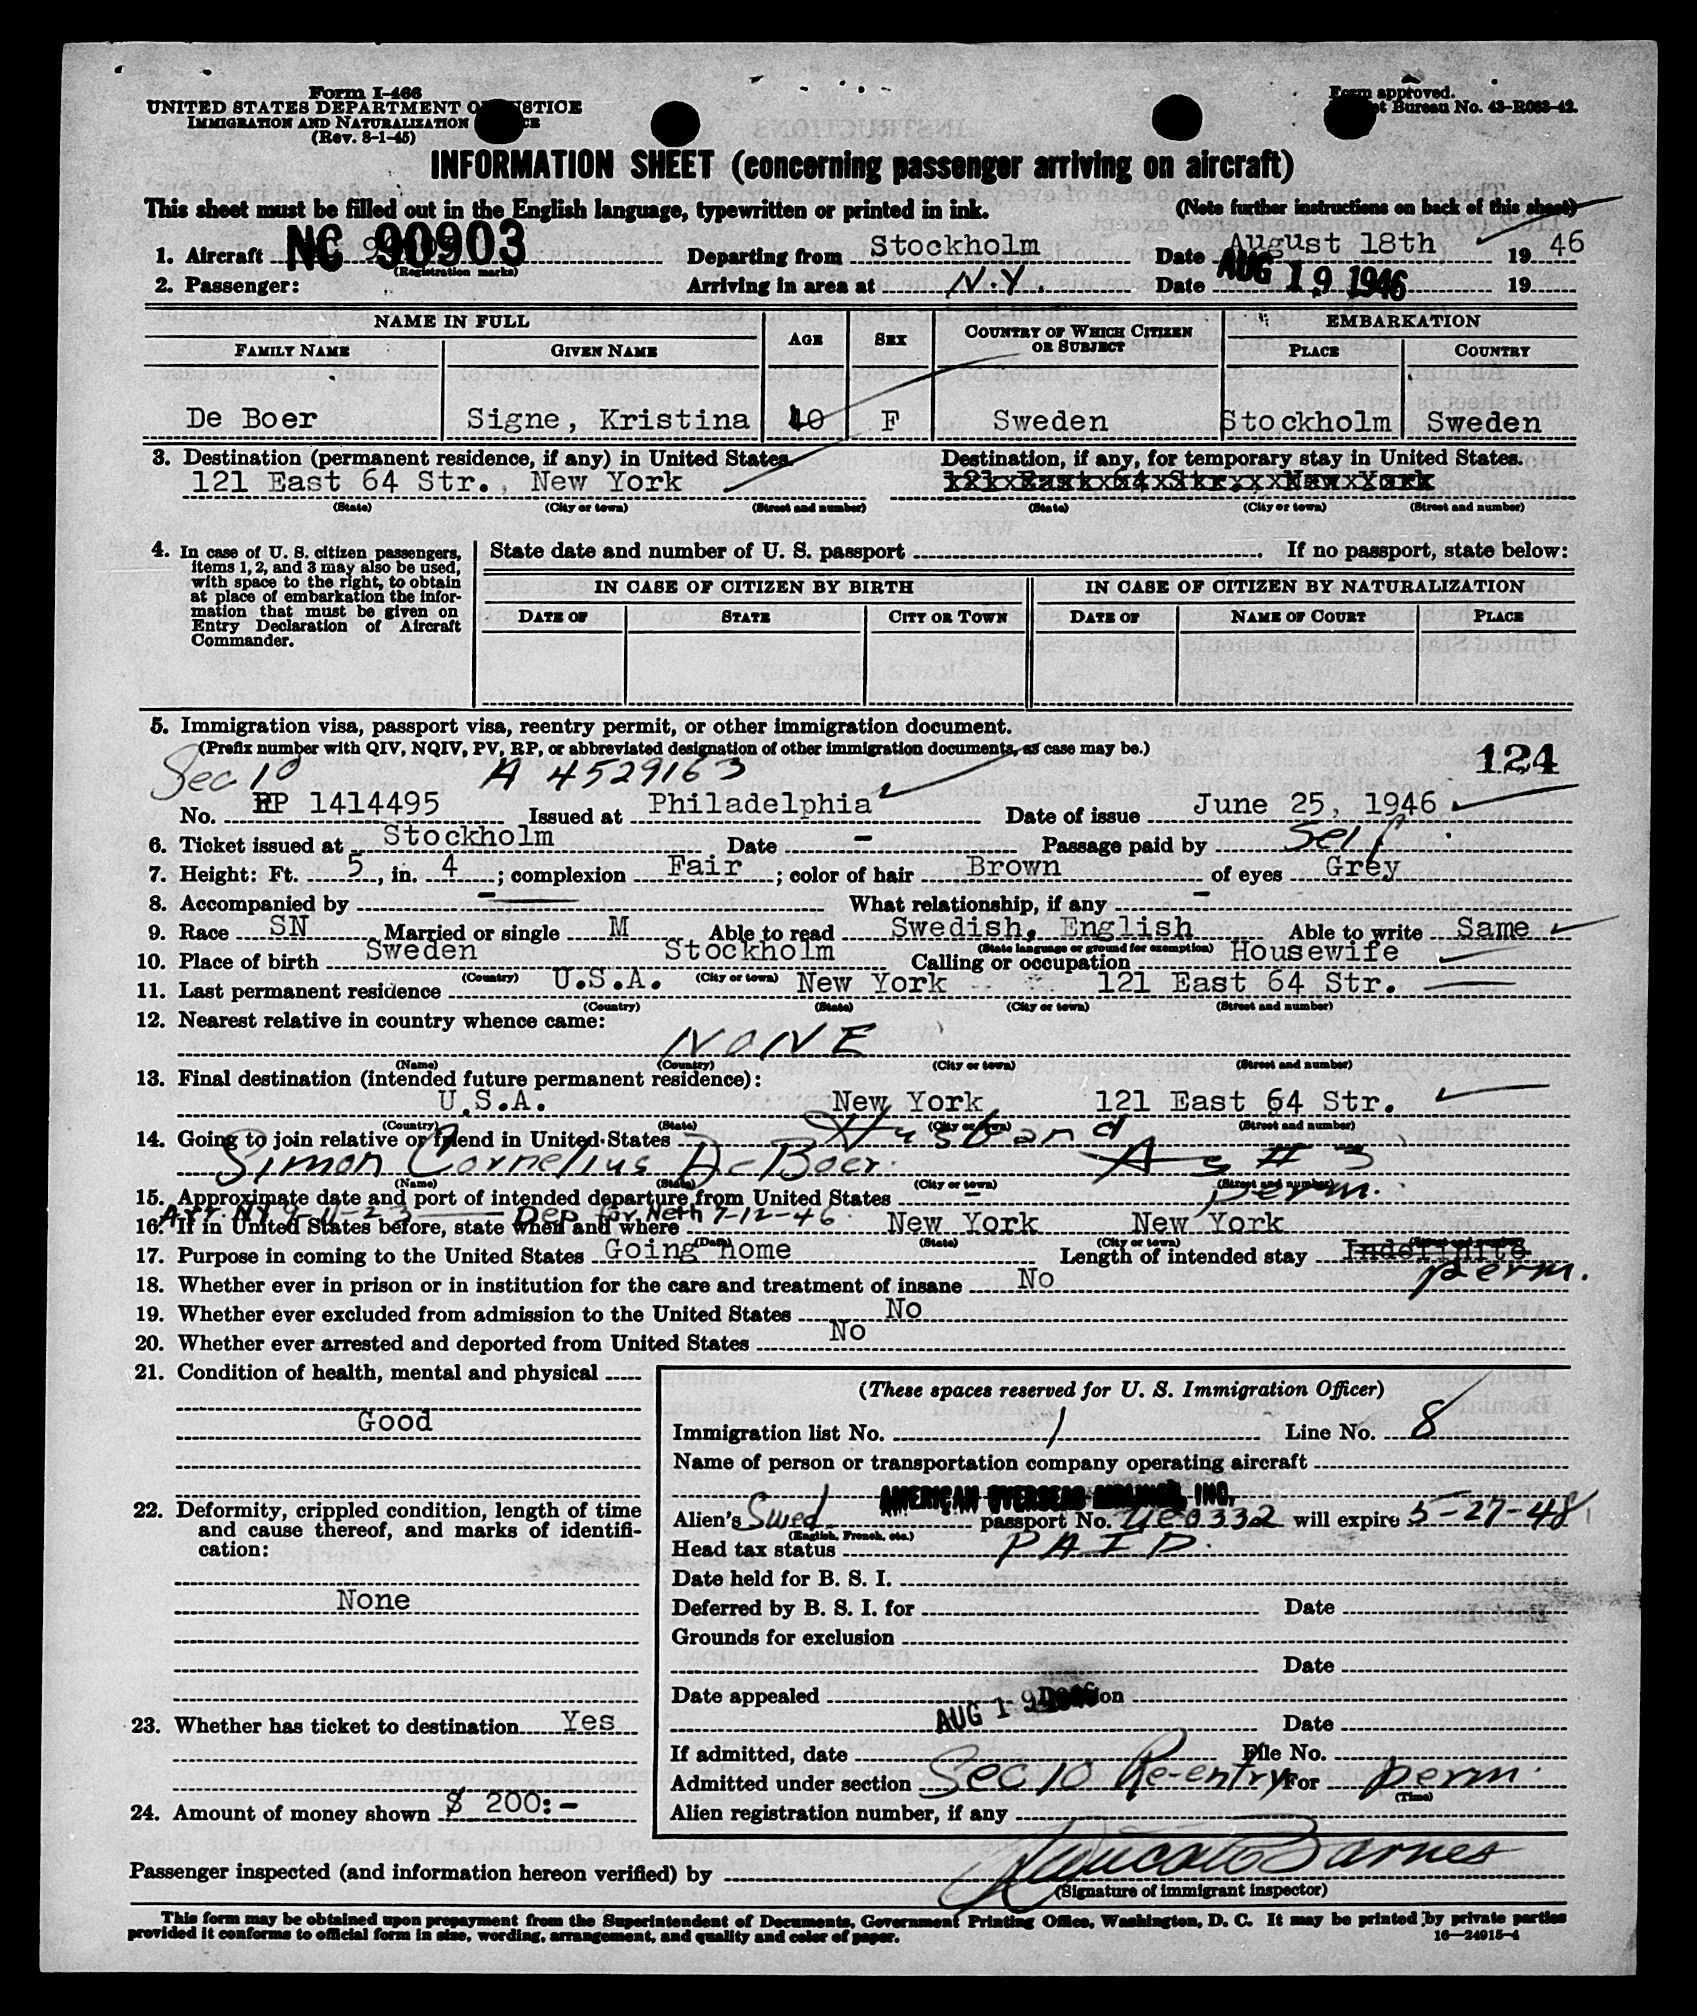 Form I-466
UNITED STATES DEPARTMENT OF JUSTICE
IMMIGRATION AND NATURALIZATION
(Rev. 8-1-45)
Form approved.
Bureau No. 43-R063-42.
INFORMATION SHEET (concerning passenger arriving on aircraft)
This sheet must be filled out in the English language, typewritten or printed in ink. (Note further instructions on back of this sheet)
1. Aircraft NC 90903 Departing from Stockholm Date August 18th 19 46
(Registration marks)
2. Passenger: Arriving in area at N.Y. Date AUG 19 1946 19
NAME IN FULL AGE SEX COUNTRY OF WHICH CITIZEN OR SUBJECT EMBARKATION
FAMILY NAME GIVEN NAME PLACE COUNTRY
De Boer Signe, Kristina 40 F Sweden Stockholm Sweden
3. Destination (permanent residence, if any) in United States. Destination, if any, for temporary stay in United States.
121 East 64 Str., New York 121 East 64 Str., New York
(State) (City or town) (Street and number) (State) (City or town) (Street and number)
4. In case of U. S. citizen passengers, items 1, 2, and 3 may also be used, with space to the right, to obtain at place of embarkation the information that must be given on Entry Declaration of Aircraft Commander.
State date and number of U. S. passport If no passport, state below:
IN CASE OF CITIZEN BY BIRTH IN CASE OF CITIZEN BY NATURALIZATION
DATE OF STATE CITY OR TOWN DATE OF NAME OF COURT PLACE
5. Immigration visa, passport visa, reentry permit, or other immigration document.
(Prefix number with QIV, NQIV, PV, RP, or abbreviated designation of other immigration documents, as case may be.) 124
Sec 10 A 4529163
No. RP 1414495 Issued at Philadelphia Date of issue June 25, 1946
6. Ticket issued at Stockholm Date - Passage paid by Self
7. Height: Ft. 5, in. 4; complexion Fair; color of hair Brown of eyes Grey
8. Accompanied by - What relationship, if any -
9. Race SN Married or single M Able to read Swedish, English Able to write Same
(State language or ground for exemption)
10. Place of birth Sweden Stockholm Calling or occupation Housewife
(Country) (City or town)
11. Last permanent residence U.S.A. New York 121 East 64 Str.
(Country) (State) (City or town) (Street and number)
12. Nearest relative in country whence came:
NONE
(Name) (Country) (City or town) (Street and number)
13. Final destination (intended future permanent residence):
U.S.A. New York 121 East 64 Str.
(Country) (State) (City or town) (Street and number)
14. Going to join relative or friend in United States Husband
Simon Cornelius De Boer As # 3
(Name) (State) (City or town) (Street and number)
15. Approximate date and port of intended departure from United States - perm.
Arr. NY 9-11-23 Dep for Neth 7-12-46
16. If in United States before, state when and where New York New York
(Date) (State) (City or town) (Street and number)
17. Purpose in coming to the United States Going home Length of intended stay Indefinite
perm.
18. Whether ever in prison or in institution for the care and treatment of insane No
19. Whether ever excluded from admission to the United States No
20. Whether ever arrested and deported from United States No
21. Condition of health, mental and physical
Good
22. Deformity, crippled condition, length of time and cause thereof, and marks of identification:
None
23. Whether has ticket to destination Yes
24. Amount of money shown $ 200:-
(These spaces reserved for U. S. Immigration Officer)
Immigration list No. 1 Line No. 8
Name of person or transportation company operating aircraft
AMERICAN OVERSEAS AIRLINES, INC.
Alien's Swed. passport No. will expire 5-27-48
(English, French, etc.)
Head tax status PAID.
Date held for B. S. I.
Deferred by B. S. I. for Date
Grounds for exclusion
Date
Date appealed Decision
AUG 19 1946 Date
If admitted, date File No.
Admitted under section Sec 10 Re-entry For perm.
(Time)
Alien registration number, if any
Passenger inspected (and information hereon verified) by Barnes
(Signature of immigrant inspector)
This form may be obtained upon prepayment from the Superintendent of Documents, Government Printing Office, Washington, D. C. It may be printed by private parties
provided it conforms to official form in size, wording, arrangement, and quality and color of paper. 16—24915-4